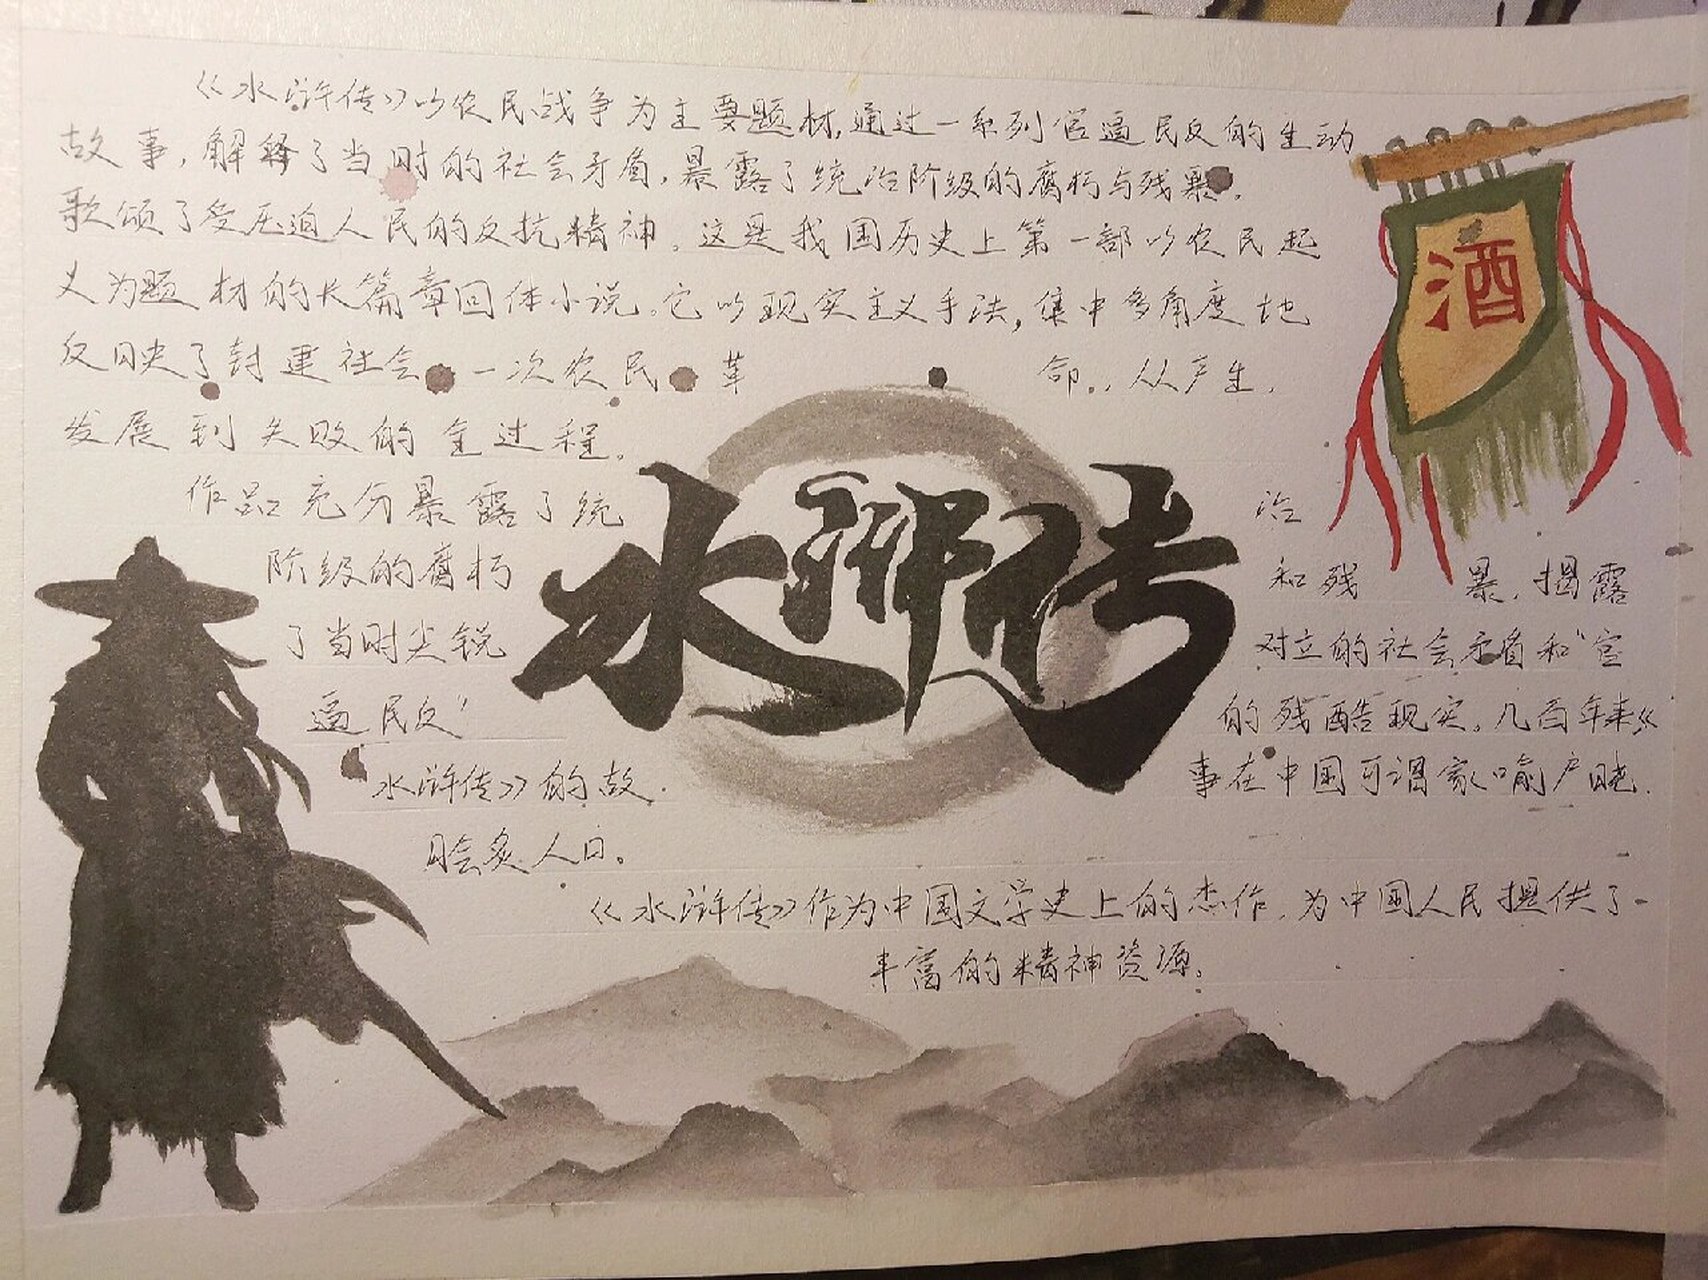 《水浒传》以农民战争为主要题材,通过一系列官逼民反的生动
故事,解释了当时的社会矛盾,暴露了统治阶级的腐朽与残暴,
歌颂了受压迫人民的反抗精神。这是我国历史上第一部以农民起
义为题材的长篇章回体小说。它以现实主义手法,集中多角度地
反映了封建社会一次农民革命,从产生,
发展到失败的全过程。
作品充分暴露了统治
阶级的腐朽和残暴,揭露
了当时尖锐对立的社会矛盾和“官
逼民反”的残酷现实。几百年来《
水浒传》的故事在中国可谓家喻户晓,
脍炙人口。
《水浒传》作为中国文学史上的杰作,为中国人民提供了
丰富的精神资源。
水浒传
酒